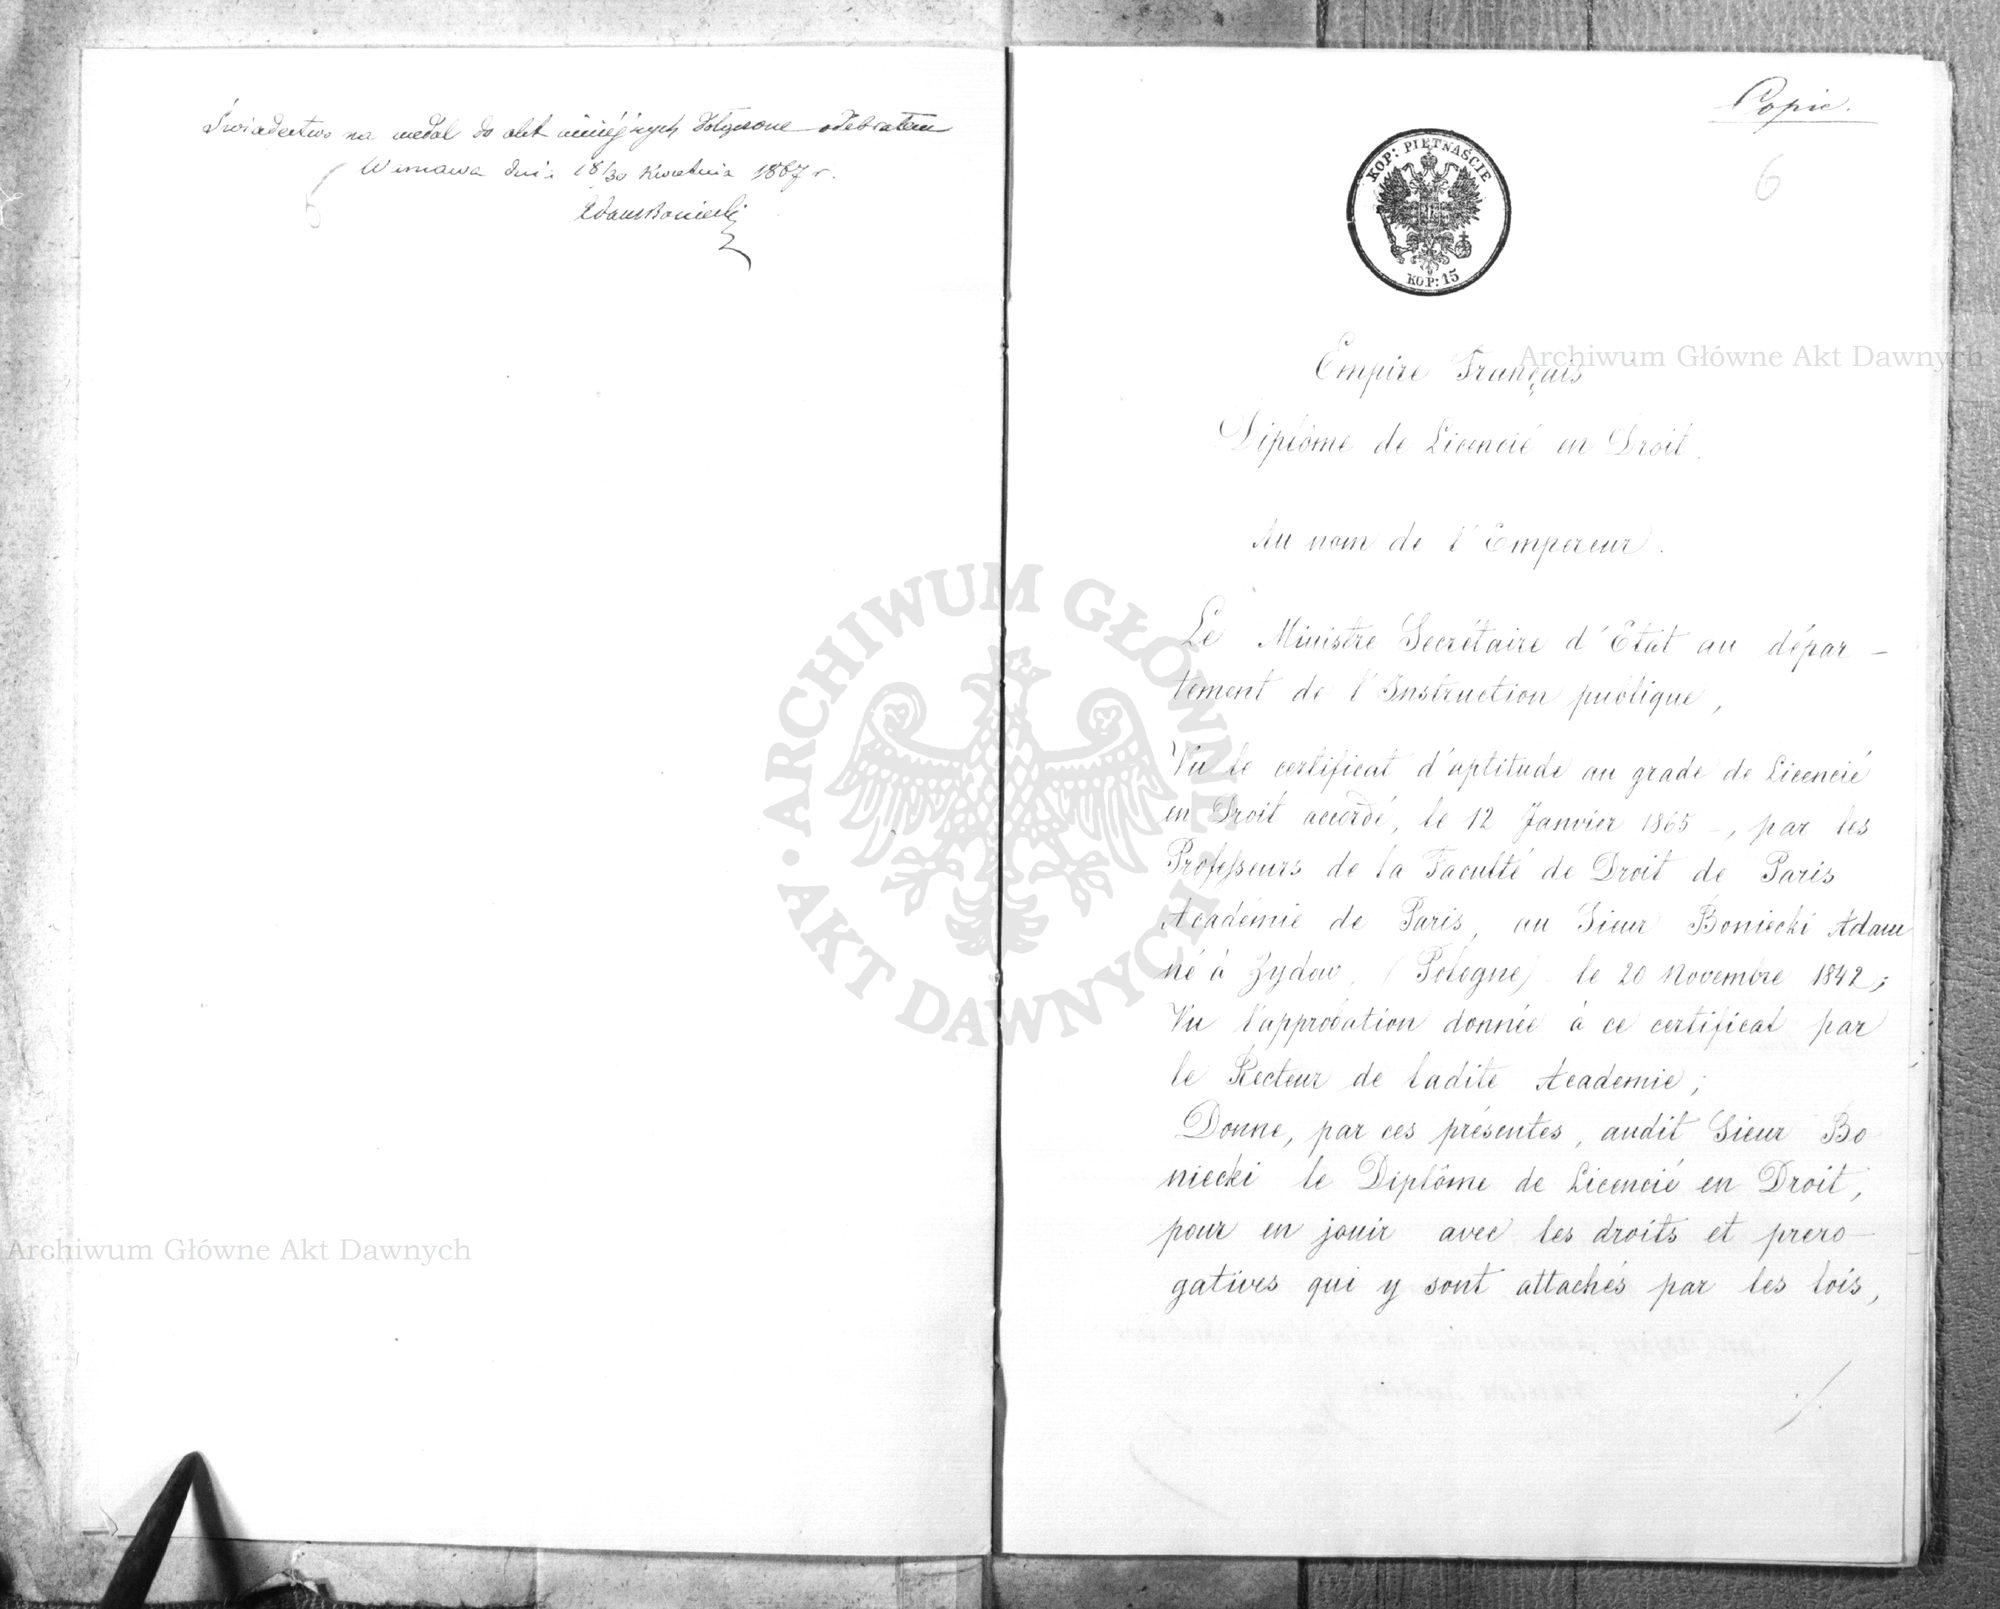 Świadectwo na medal do akt niniejszych dołączone odebrałem
Warszawa dnia 18/30 Kwietnia 1867 r.
Adam Boniecki
Copie.
6
KOP: PIĘTNAŚCIE
KOP: 15
Empire Français
Diplôme de Licencié en Droit.
Au nom de l'Empereur.
Le Ministre Secrétaire d'Etat au dépar-
tement de l'Instruction publique,
Vu le certificat d'aptitude au grade de Licencié
en Droit accordé, le 12 Janvier 1865 -, par les
Professeurs de la Faculté de Droit de Paris
Académie de Paris, au Sieur Boniecki Adam
né à Zydow, (Pologne) le 20 Novembre 1842;
Vu l'approbation donnée à ce certificat par
le Recteur de ladite Academie;
Donne, par ces présentes, audit Sieur Bo
niecki le Diplôme de Licencié en Droit,
pour en jouir avec les droits et prero-
gatives qui y sont attachés par les lois,
Archiwum Główne Akt Dawnych
ARCHIWUM GŁÓWNE
• AKT DAWNYCH •
Archiwum Główne Akt Dawnych